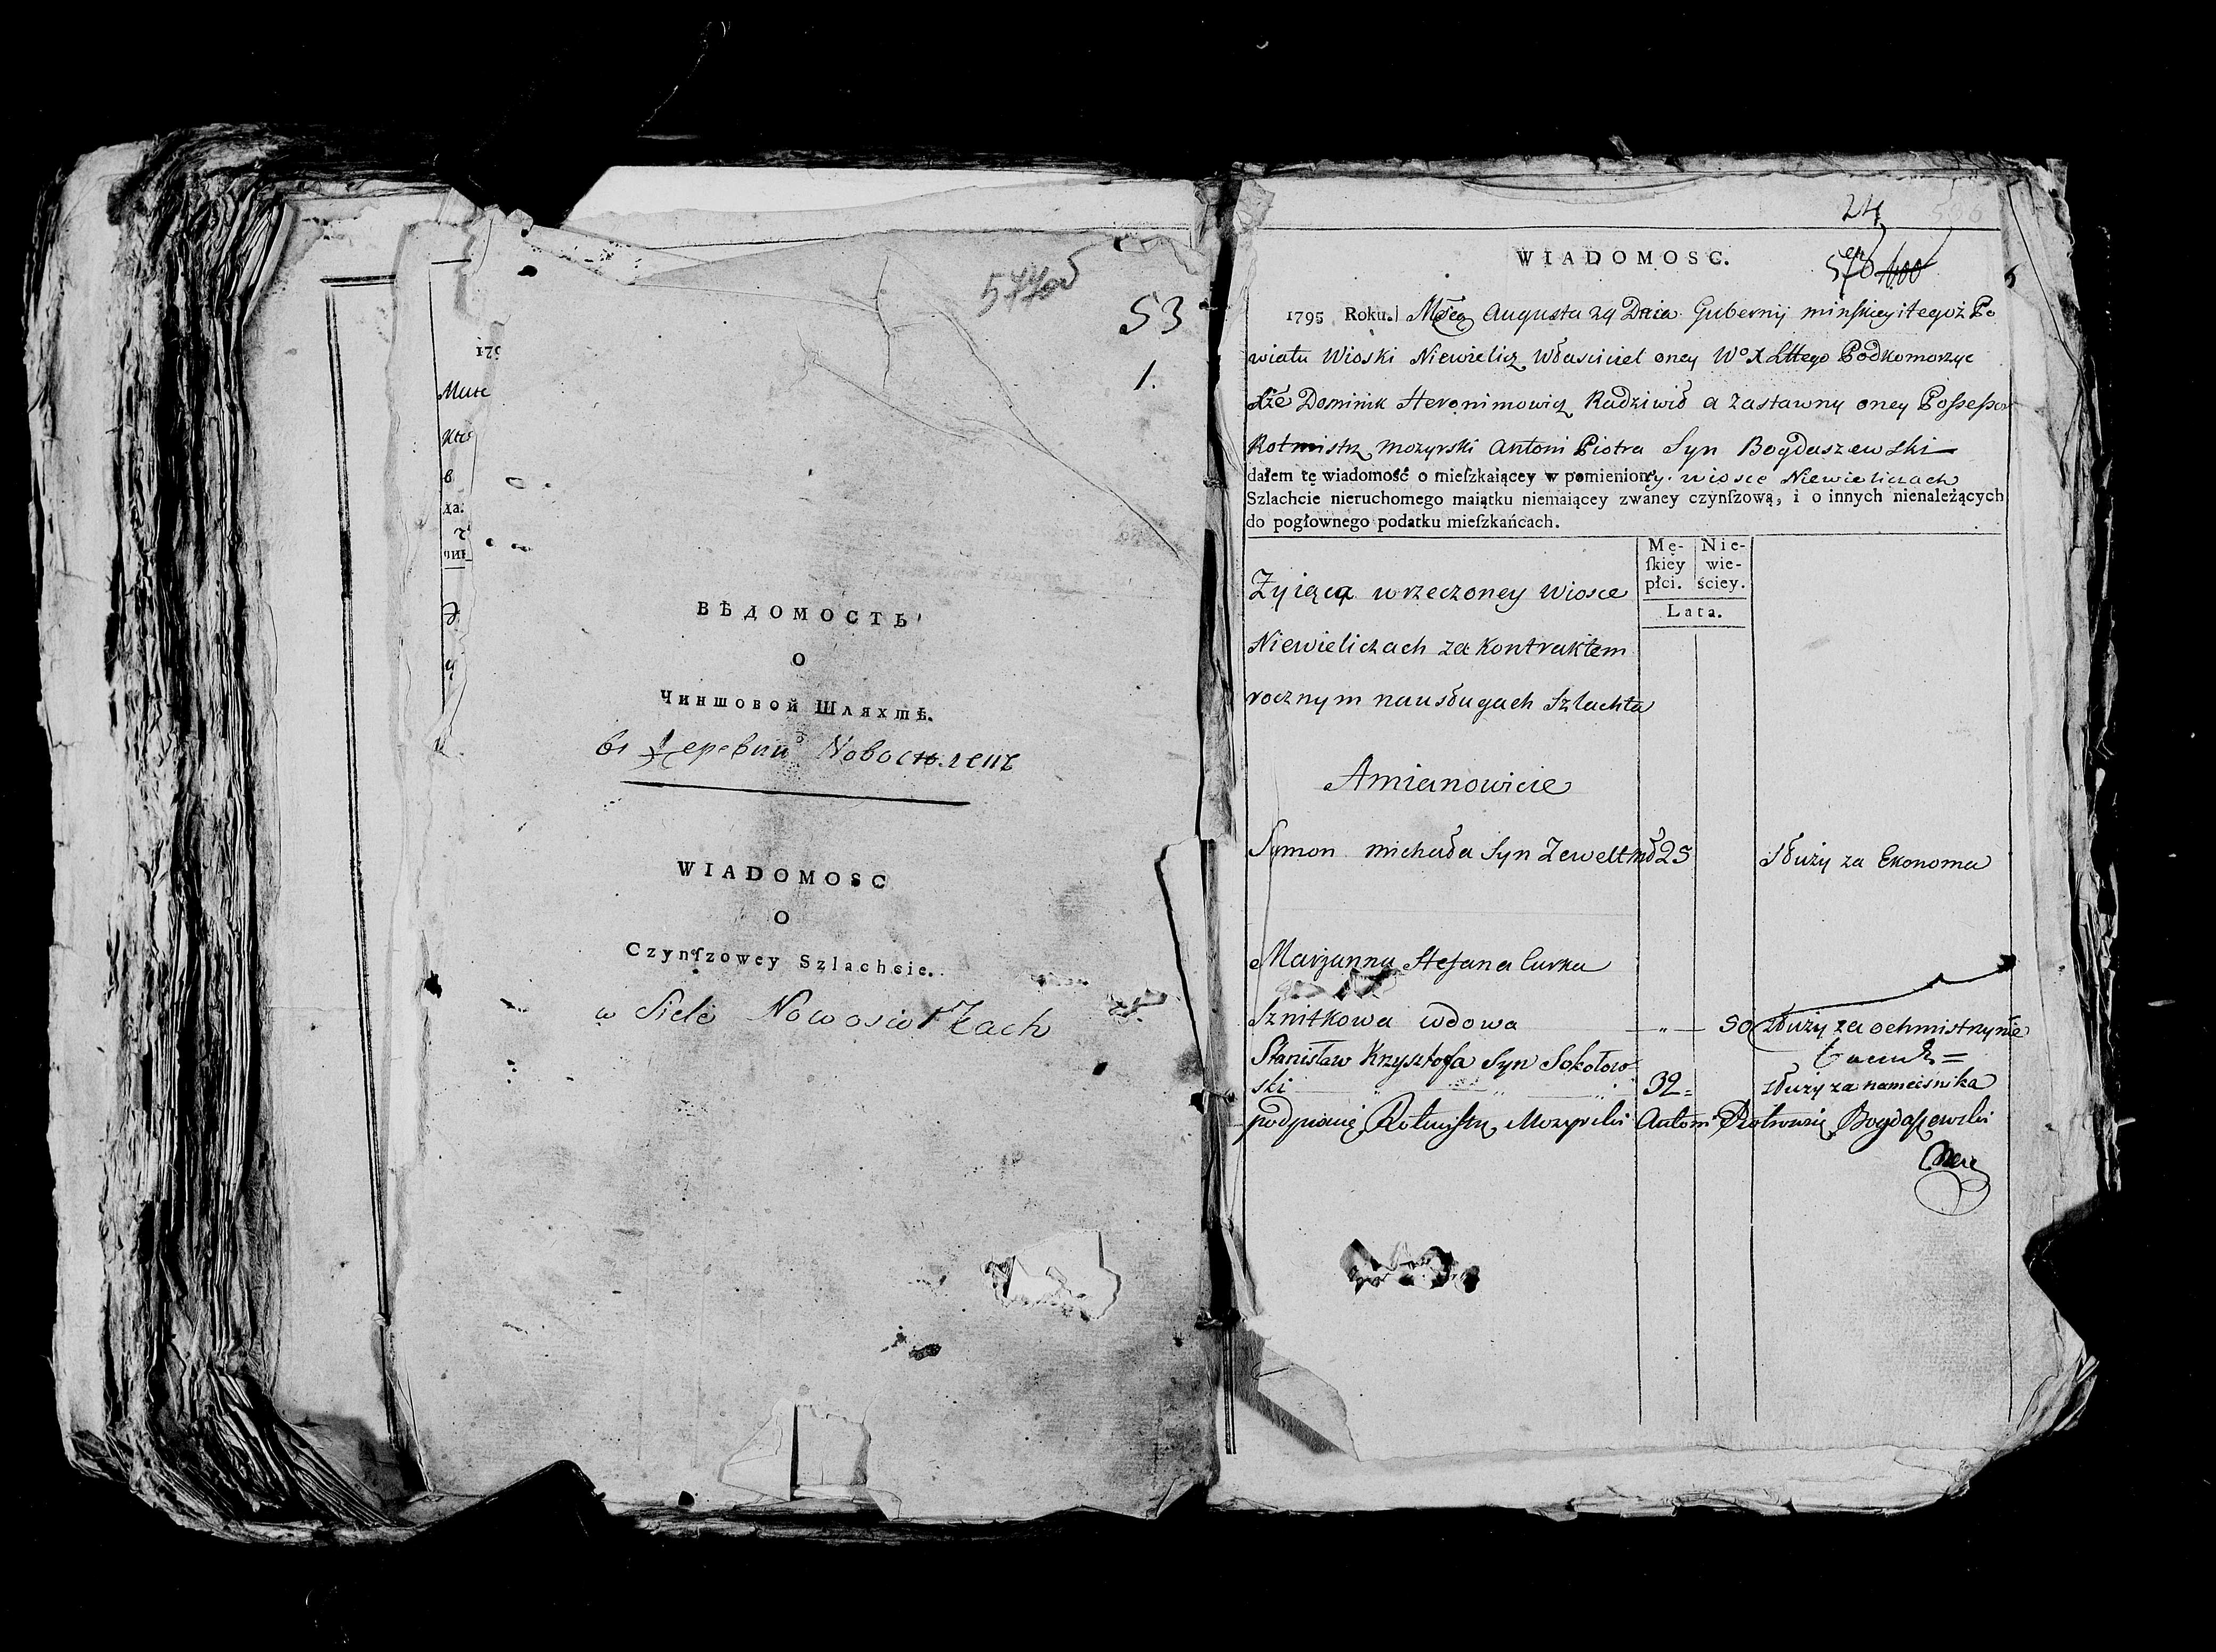 53
1.
ВѢДОМОСТЬ
О
Чиншовой Шляхтѣ.
WIADOMOSC
O
Czynſzowey Szlachcie.
w Siele Nowosiołkach
24
WIADOMOSC.
1795 Roku. Augusta 29 Dnia Gubernij minſkiey itegoż Po
wiatu Wioski Niewielicz Właściciel oney Podkomorzyc
Dominik Heronimowicz Radziwił a zastawny oney Poſseſsor
Rotmistrz mozyrski Antoni Piotra Syn Bogdaszewski
dałem tę wiadomość o mieſzkaiącey w pomienioney wiosce Niewieliczach
Szlachcie nieruchomego maiątku niemaiącey zwaney czynſzową, i o innych nienależących
do pogłownego podatku mieſzkańcach.
Mę- Nie-
ſkiey wie-
płci. ściey.
Lata.
Zyiąca wrzeczoney wiosce
Niewieliczach za Kontraktem
rocznym nausługach Szlachta
Amianowicie
Symon michała Syn 25 służy za Ekonoma
Maryanna Stefana Curka
Sznitkowa wdowa 50 służy za ochmistrzynie
Stanisław Krzysztofa Syn Sokołow
ski 32 służy za namiesnika
Rotmistrz Mozyrski Antoni Piotrowicz Bogdaszewski